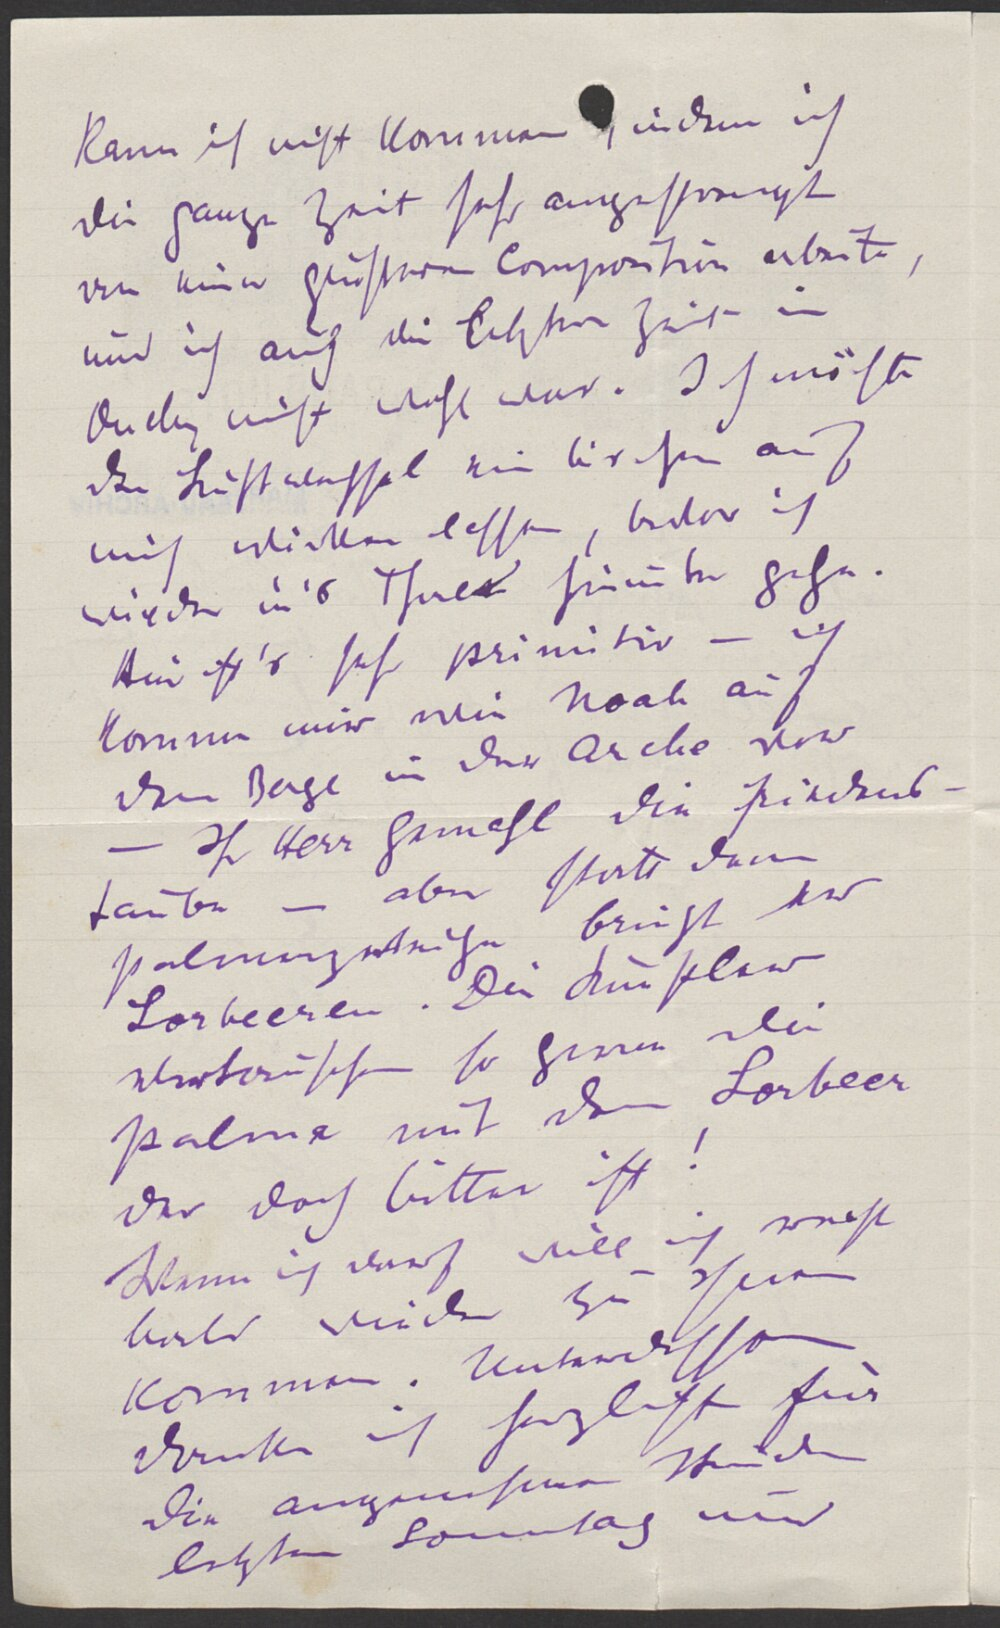 Kann ich nicht kommen, indem ich
die ganze Zeit sehr angestrengt
an einer größeren Composition arbeite,
und ich auch die letzten Zeit in
Ouchy nicht wohl war. Ich möchte
den Luftwechsel ein bischen auf
mich wirken lassen, bevor ich
wieder in's Thal hinunter gehe.
Hier ist's sehr primitiv — ich
komme mir wie Noah auf
dem Berge in der Arche vor
— Ihr Herr Gemahl die Friedens-
taube — aber statt dem
Palmenzweige bringt er
Lorbeeren. Die Künstler
vertauschen so gerne die
Palme mit dem Lorbeer
der doch bitter ist!
Wenn ich darf will ich recht
bald wieder zu Ihnen
kommen. Unterdessen
danke ich herzlichst für
die angenehmen Stunden
letzten Sonntag und